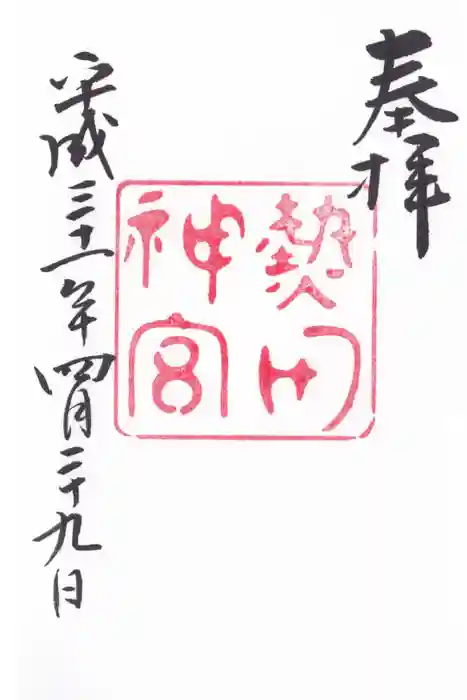 奉拝
熱田
神宮
平成三十一年四月二十九日